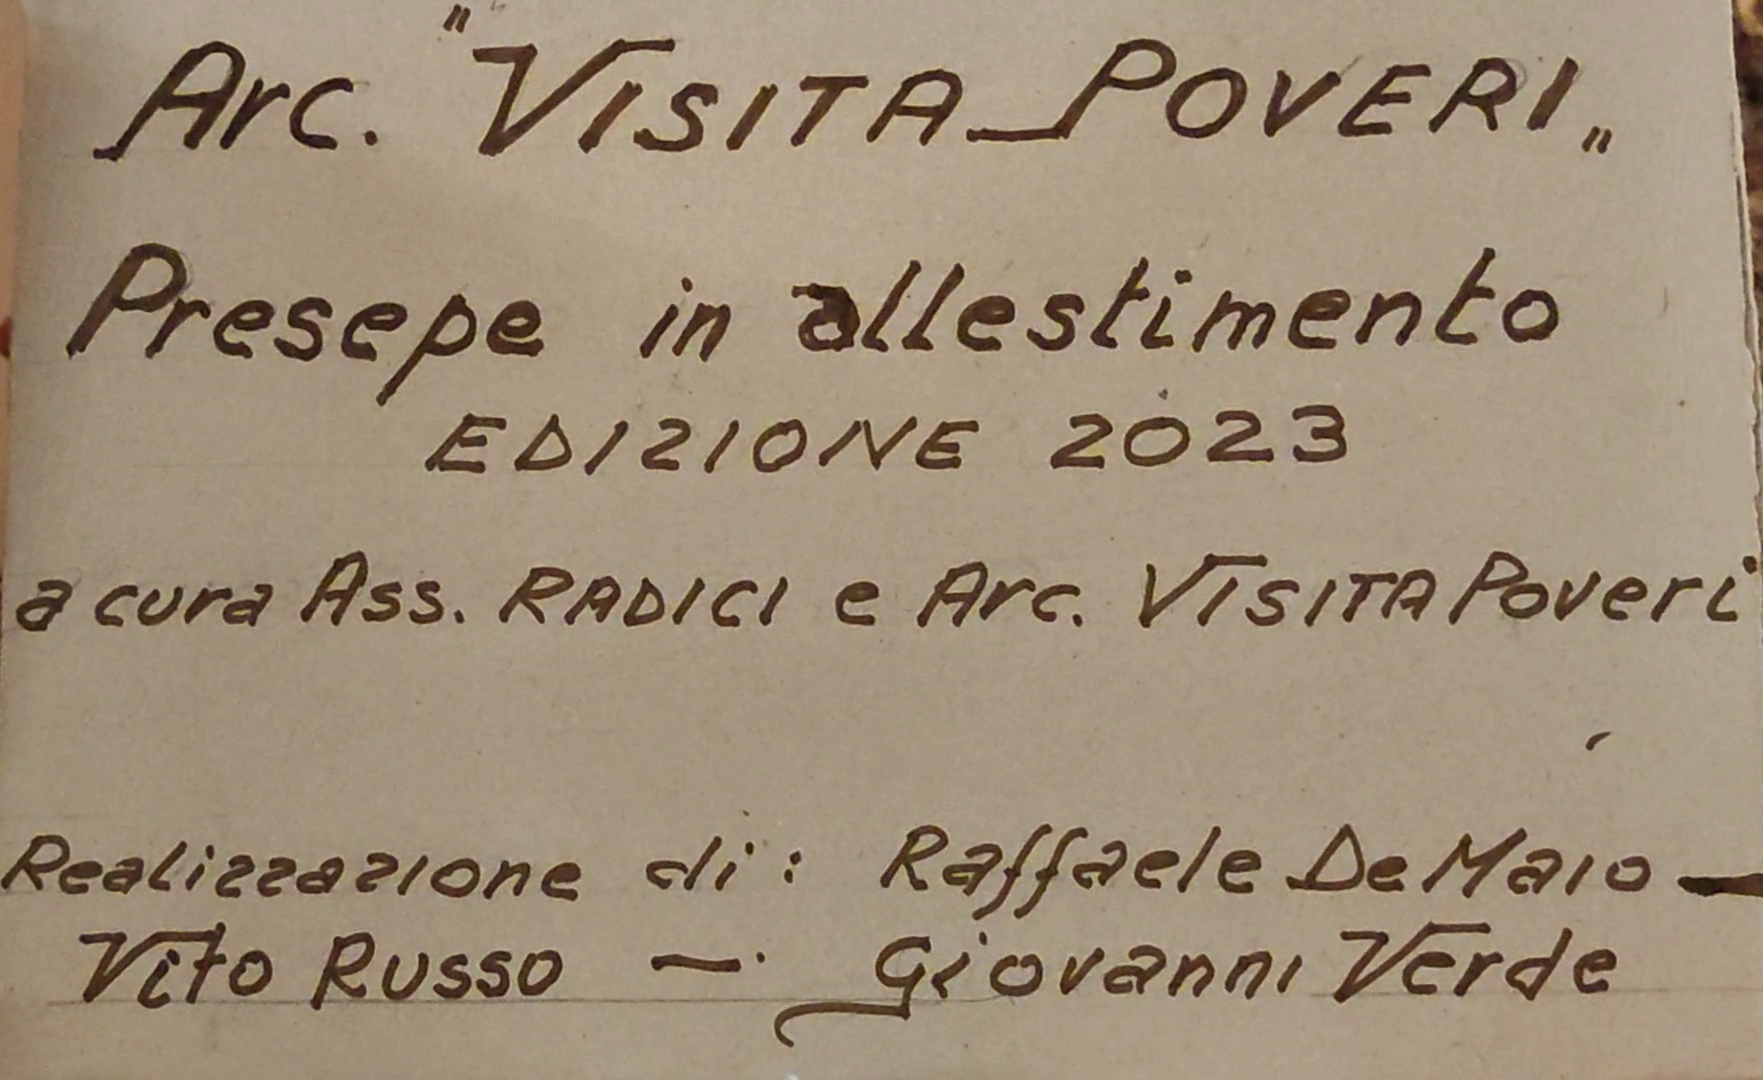 Arc. "VISITA POVERI„
Presepe in allestimento
EDIZIONE 2023
a cura Ass. RADICI e Arc. VISITA Poveri
Realizzazione di: Raffaele De Maio —
Vito Russo — Giovanni Verde